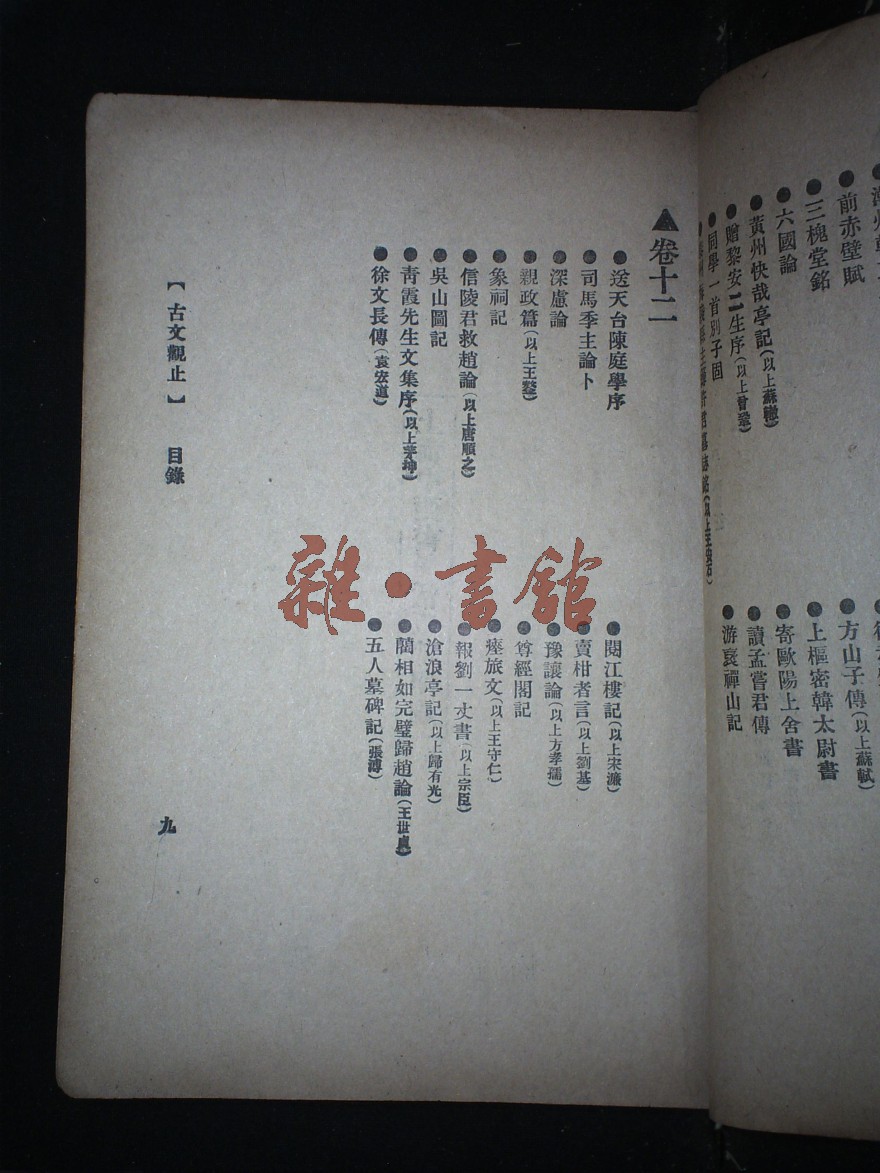 前赤壁賦
三槐堂銘
六國論
黃州快哉亭記(以上蘇轍)
贈黎安二生序(以上曾鞏)
同學一首別子固
方山子傳(以上蘇軾)
上樞密韓太尉書
寄歐陽上舍書
讀孟嘗君傳
游褒禪山記
▲卷十二
●送天台陳庭學序
●閱江樓記(以上宋濂)
●司馬季主論卜
●賣柑者言(以上劉基)
●深慮論
●豫讓論(以上方孝孺)
●親政篇(以上王鏊)
●尊經閣記
●象祠記
●瘞旅文(以上王守仁)
●信陵君救趙論(以上唐順之)
●報劉一丈書(以上宗臣)
●吳山圖記
●滄浪亭記(以上歸有光)
●青霞先生文集序(以上茅坤)
●藺相如完璧歸趙論(王世貞)
●徐文長傳(袁宏道)
●五人墓碑記(張溥)
【古文觀止】 目錄
九
雜·書館